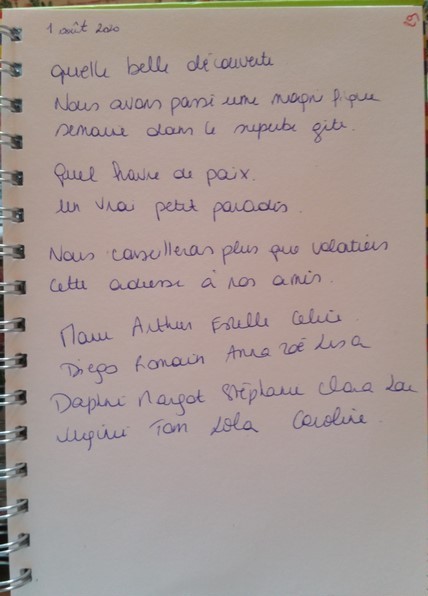 1 août 2020
29
Quelle belle découverte
Nous avons passé une magnifique
semaine dans le superbe gite.
Quel havre de paix.
Un vrai petit paradis.
Nous conseillerons plus que volontiers
cette adresse à nos amis.
Arthur Estelle Celine
Diego Romain Anna Zoé Lisa
Daphné Margot Stéphanie Clara
Virginie Tom Lola Caroline.